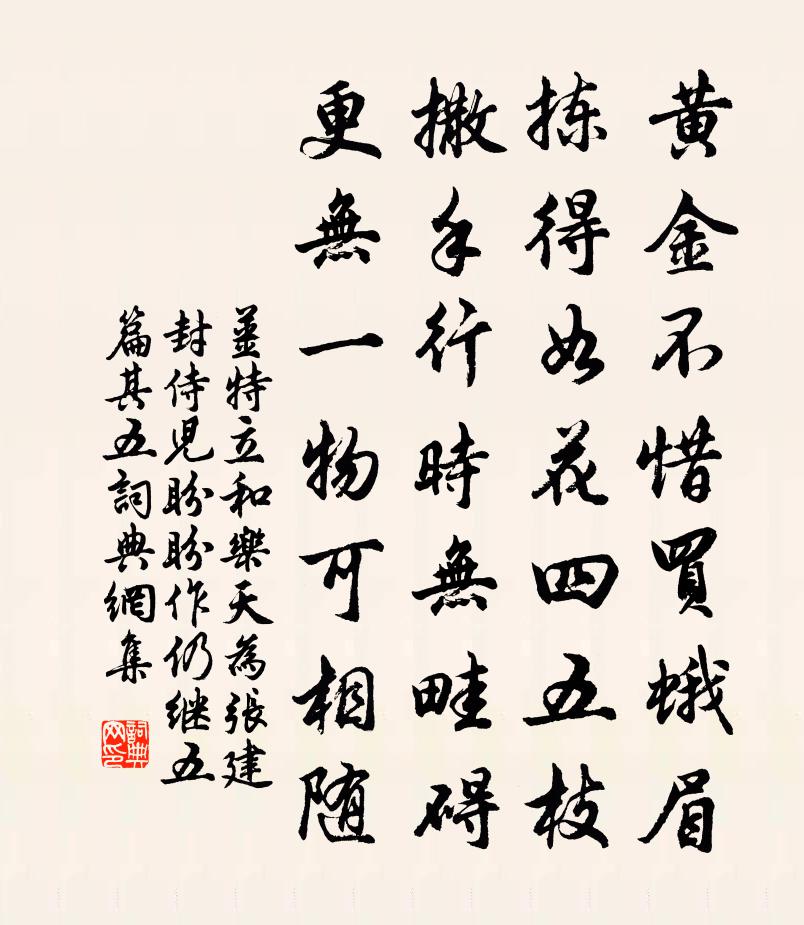 黄金不惜買蛾眉
拣得如花四五枝
撒手行時無畦碍
更無一物可相随
薑特立和樂天為張建
封侍児盼盼作仍继五
篇其五詞典網集
詞典
网印